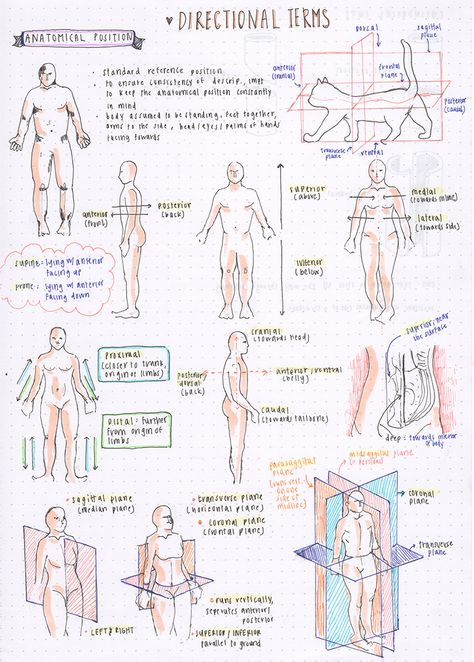 ♥ DIRECTIONAL TERMS
ANATOMICAL POSITION
• standard reference position
• to ensure consistency of descrip., impt
to keep the anatomical position constantly
in mind
• body assumed to be standing, feet together,
arms to the side, head/eyes/palms of hands
facing towards
dorsal
sagittal
plane
anterior
(cranial)
frontal
plane
posterior
(caudal)
transverse
plane
ventral
anterior
(front)
posterior
(back)
superior
(above)
inferior
(below)
medial
(towards midline)
lateral
(towards side)
supine: lying w/ anterior
facing up
prone: lying w/ anterior
facing down
proximal
(closer to trunk,
origin of limbs)
distal: further
from origin of
limbs
cranial
(towards head)
posterior
dorsal
(back)
anterior/ventral
(belly)
caudal
(towards tailbone)
superior: near
the surface
deep: towards interior
of body
• sagittal plane
(median plane)
• LEFT & RIGHT
• transverse plane
(horizontal plane)
• coronal plane
(frontal plane)
• runs vertically,
seperates anterior/
posterior
• SUPERIOR / INFERIOR
parallel to ground
parasagittal
plane
on one
side of
midline)
midsagittal plane
coronal
plane
transverse
plane